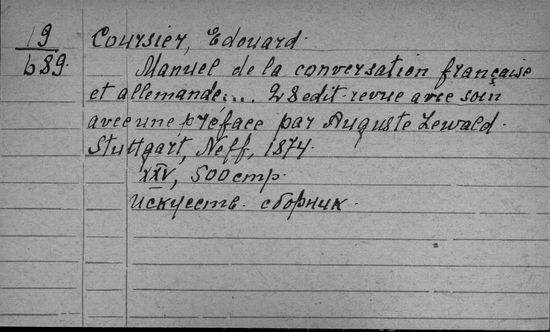 19
689.
Coursier, Edouard.
Manuel de la conversation française
et allemande... 28 edit. revue avec soin
avec une préface par Auguste Lewald.
Stuttgart, Neff, 1874.
XXIV, 500 стр.
Искусств. сборник.